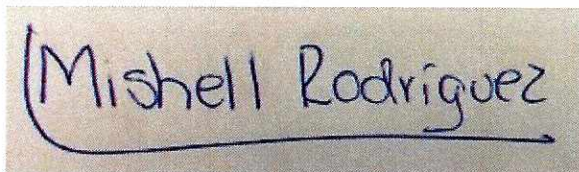 Mishell Rodríguez